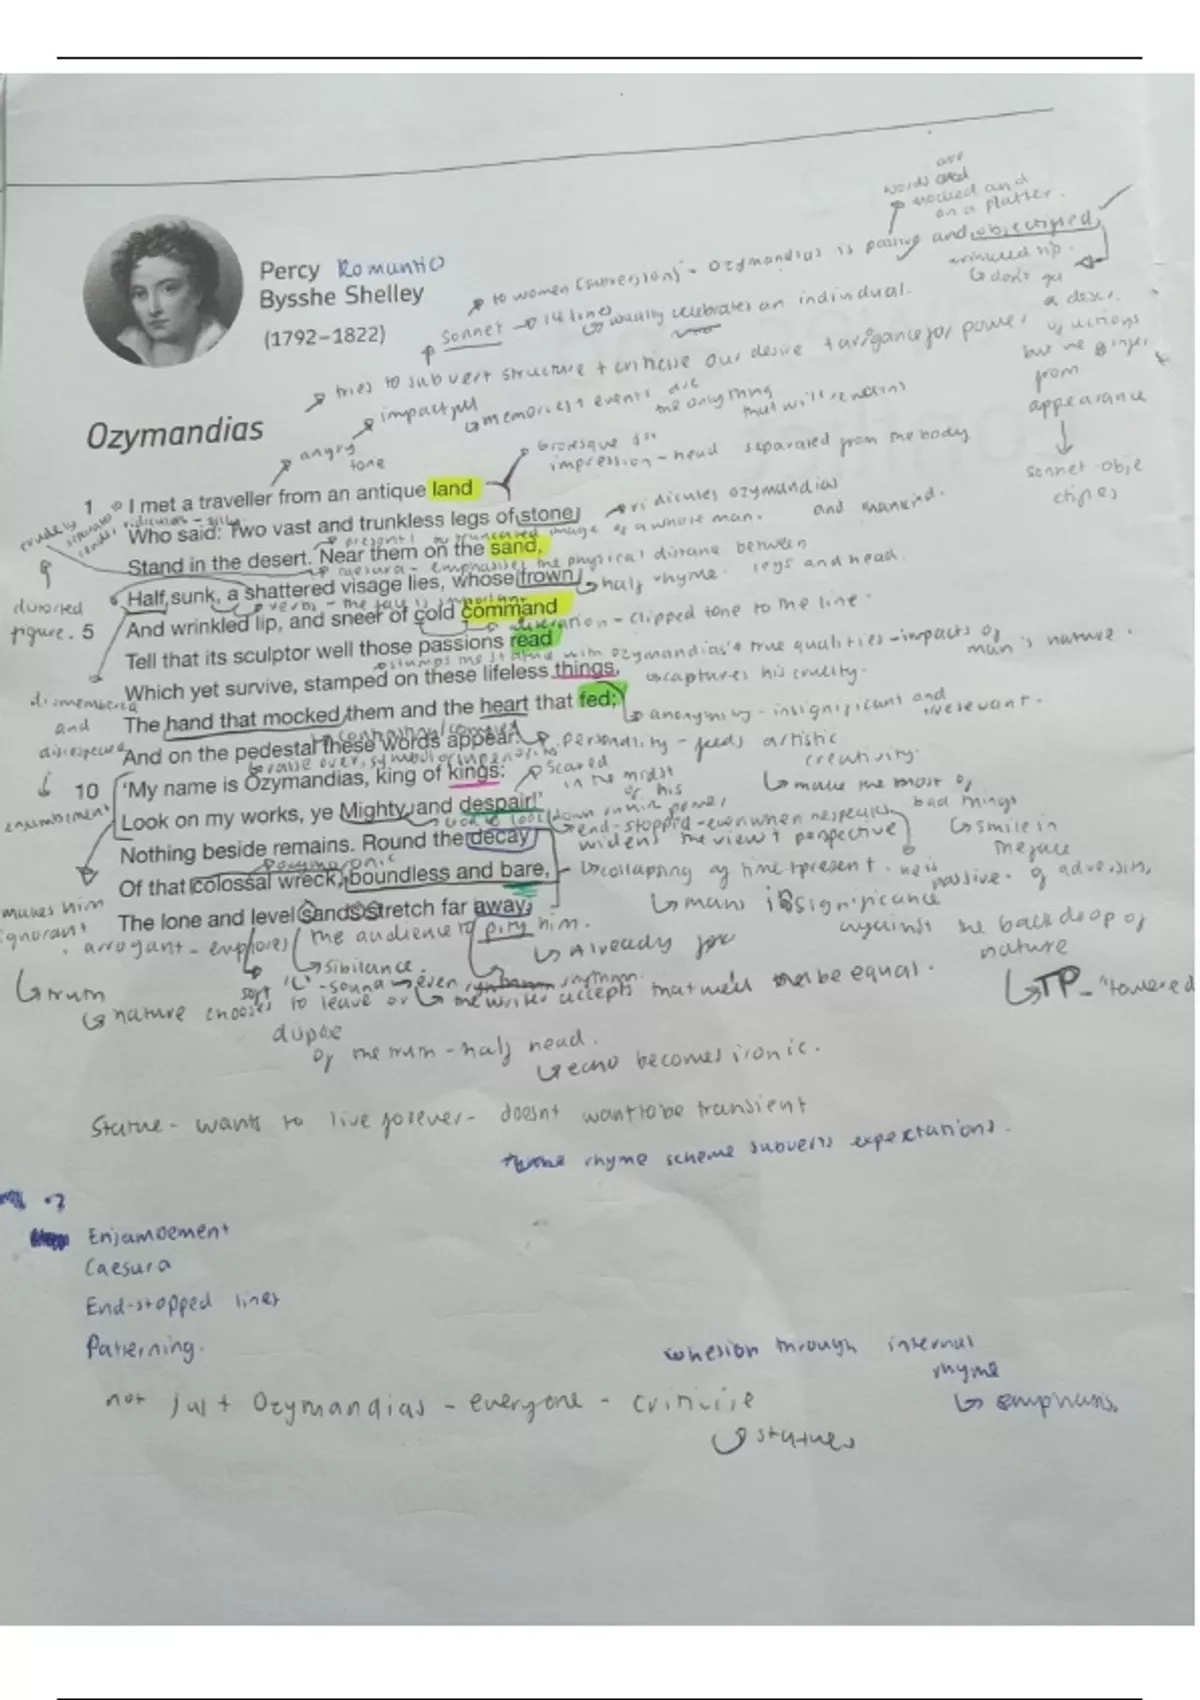 are
words
mocked and
on a platter.
to women (subversion) - Ozymandias is passive and objectified,
wrinkled lip.
don't get
a descr.
of actions
but we
from
appearance
sonnet - obje
ctifies
Percy Romantic
Bysshe Shelley
(1792–1822)
sonnet → 14 lines
usually celebrates an individual.
tries to subvert structure + criticise our desire + arrogance for power
impactful
memories + events are
the only thing
that will remain
Ozymandias
angry
tone
Grotesque 1st
impression - head separated from the body
1 I met a traveller from an antique land
ridiculous - silly
ridicules Ozymandias
and mankind.
Who said: Two vast and trunkless legs of stone
image of a whole man.
Stand in the desert. Near them on the sand,
caesura - emphasises the physical distance between
legs and head.
Half sunk, a shattered visage lies, whose frown
half rhyme.
distorted
figure.
verbs - the face is important
5 And wrinkled lip, and sneer of cold command
alliteration - clipped tone to the line.
Tell that its sculptor well those passions read
stamps the statue with Ozymandias's true qualities - impacts of
man's nature.
Which yet survive, stamped on these lifeless things,
captures his cruelty.
dismembered
and
disrespected
The hand that mocked them and the heart that fed;
anonymity - insignificant and
irrelevant.
And on the pedestal these words appear:
personality - feeds artistic
creativity.
10 'My name is Ozymandias, king of kings:
scared
in the midst
of his
power,
make the most of
bad things
smile in
the face
of adversity,
enjambment
Look on my works, ye Mighty, and despair!'
end-stopped - even when he speaks
widens the view + perspective
Nothing beside remains. Round the decay
oxymoronic
Of that colossal wreck, boundless and bare,
collapsing of time + present. he is
passive.
mans insignificance
against the backdrop of
nature
makes him
ignorant
The lone and level sands stretch far away.
. arrogant - employs
the audience to pity him.
Already
sibilance.
soft 'L' - sound → even
truth
nature chooses to leave or
the writer accepts that we'll be equal.
TP - "towered
of the truth - half head.
echo becomes ironic.
Statue - wants to live forever - doesnt want to be transient
rhyme scheme subverts expectations.
Enjambement
Caesura
End-stopped lines
Patterning.
cohesion through internal
rhyme
emphasis,
not just Ozymandias - everyone - criticise
statues